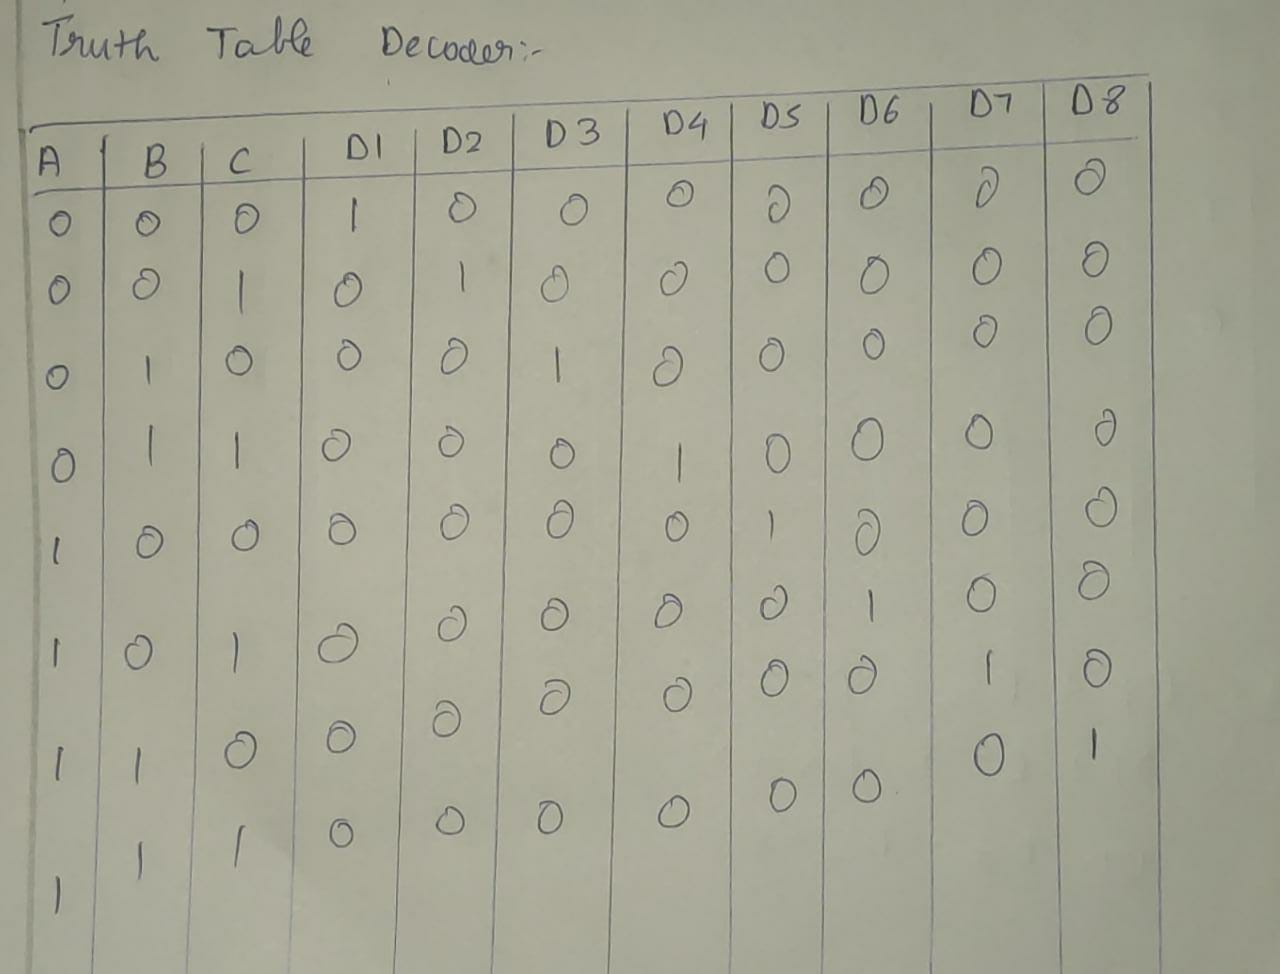 Truth Table Decoder:-
A B C D1 D2 D3 D4 D5 D6 D7 D8
0 0 0 1 0 0 0 0 0 0 0
0 0 1 0 1 0 0 0 0 0 0
0 1 0 0 0 1 0 0 0 0 0
0 1 1 0 0 0 1 0 0 0 0
1 0 0 0 0 0 0 1 0 0 0
1 0 1 0 0 0 0 0 1 0 0
1 1 0 0 0 0 0 0 0 1 0
1 1 1 0 0 0 0 0 0 0 1